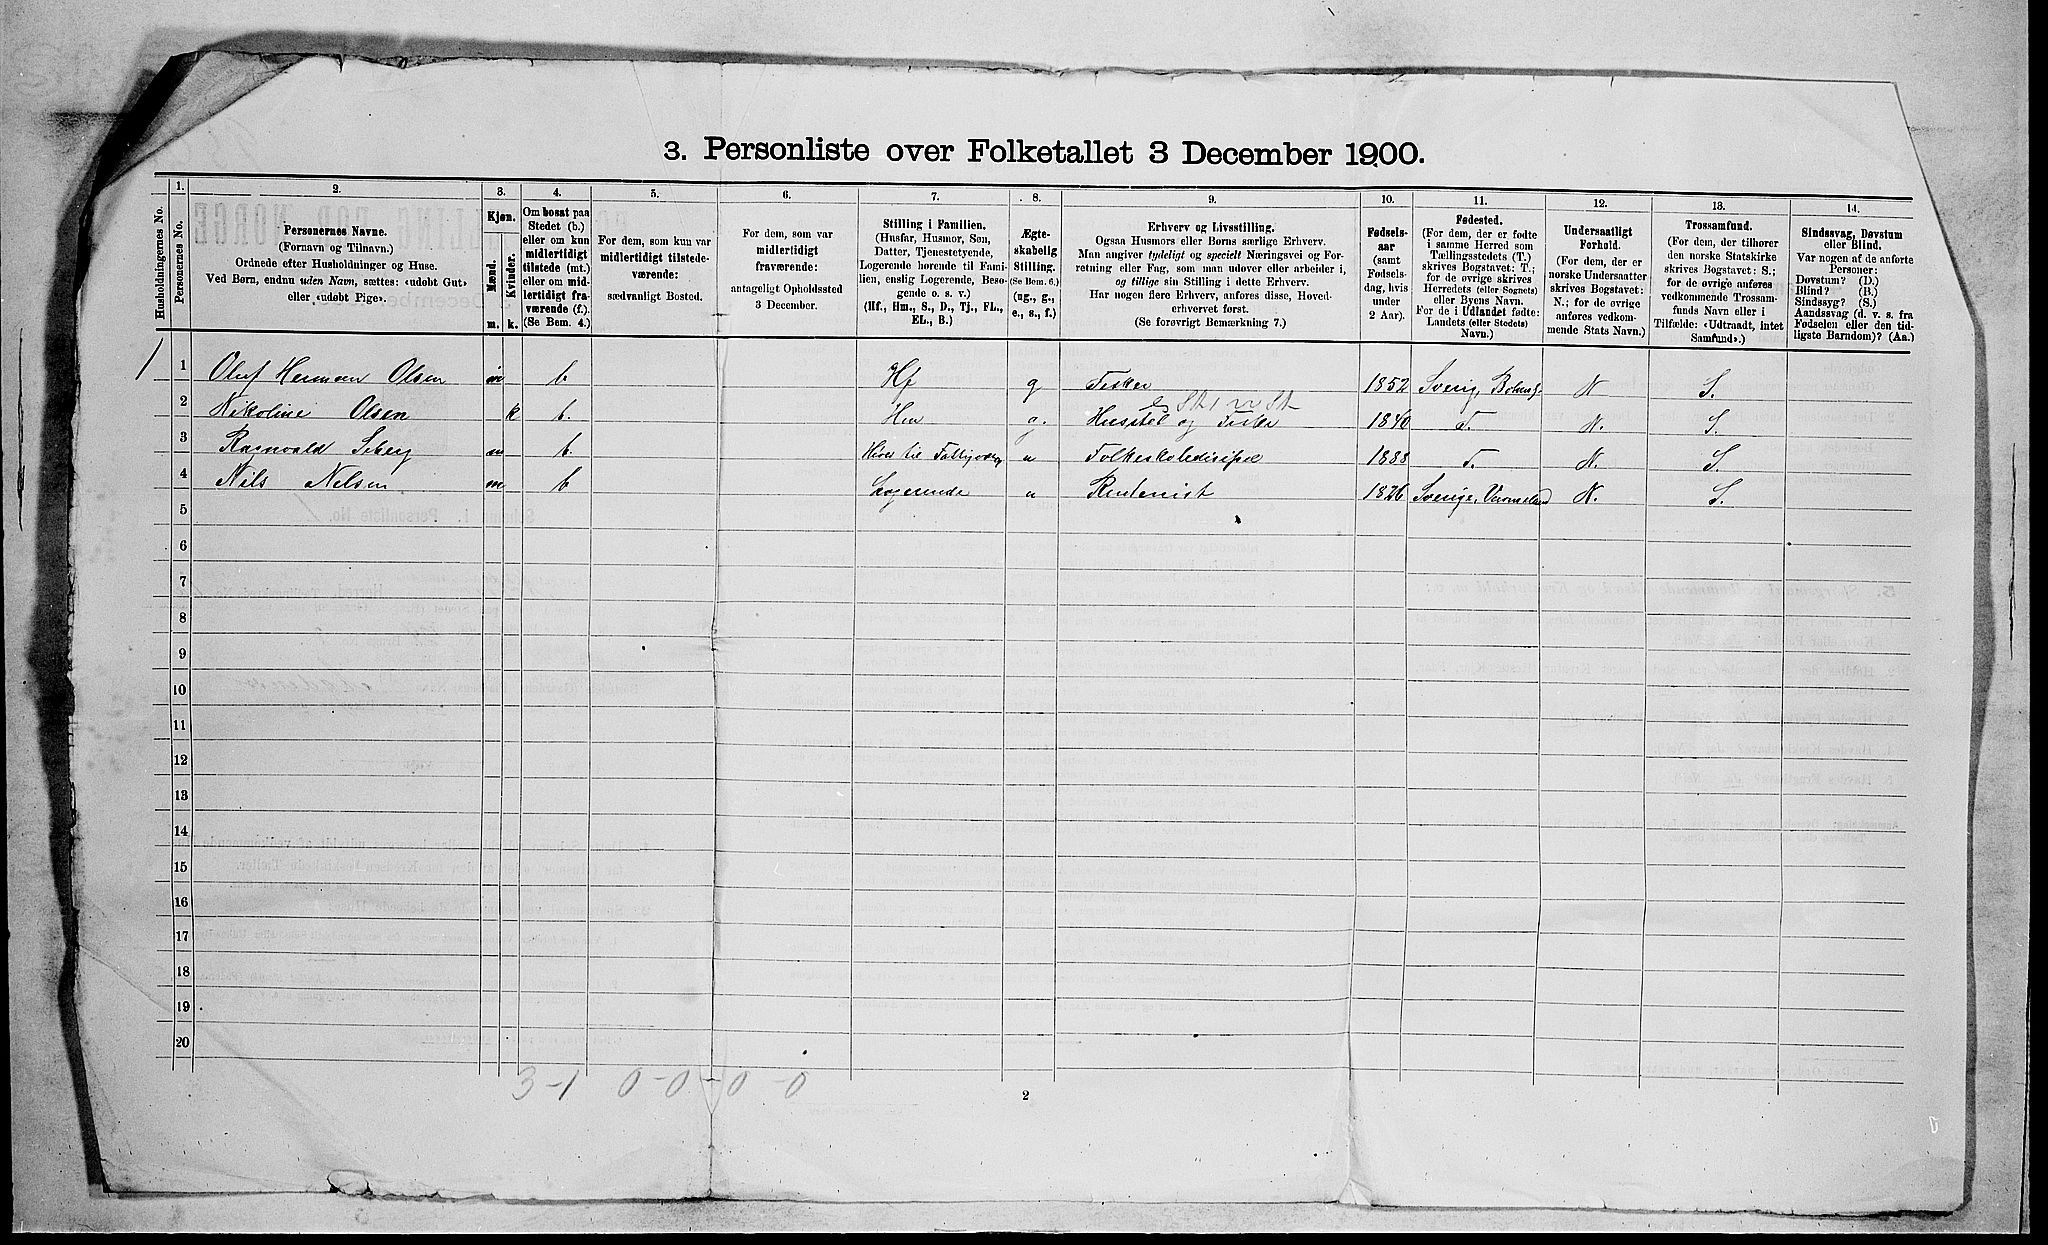 3. Personliste over Folketallet 3 December 1900.
1. 2. 3. 4. 5. 6. 7. 8. 9. 10. 11. 12. 13. 14.
Husholdningernes No.
Personernes No.
Personernes Navne.
(Fornavn og Tilnavn.)
Ordnede efter Husholdninger og Huse.
Ved Børn, endnu uden Navn, sættes: «udøbt Gut»
eller «udøbt Pige».
Kjøn.
Mænd.
Kvinder.
m. k.
Om bosat paa
Stedet (b.)
eller om kun
midlertidigt
tilstede (mt.)
eller om mid-
lertidigt fra-
værende (f.).
(Se Bem. 4.)
For dem, som kun var
midlertidigt tilstede-
værende:
sædvanligt Bosted.
For dem, som var
midlertidigt
fraværende:
antageligt Opholdssted
3 December.
Stilling i Familien.
(Husfar, Husmor, Søn,
Datter, Tjenestetyende,
Logerende hørende til Fami-
lien, enslig Logerende, Besø-
gende o. s. v.)
(Hf., Hm., S., D., Tj., FL.,
EL., B.)
Ægte-
skabelig
Stilling.
(Se Bem. 6.)
(ug., g.,
e., s., f.)
Erhverv og Livsstilling.
Ogsaa Husmors eller Børns særlige Erhverv.
Man angiver tydeligt og specielt Næringsvei og For-
retning eller Fag, som man udøver eller arbeider i,
og tillige sin Stilling i dette Erhverv.
Har nogen flere Erhverv, anføres disse, Hoved-
erhvervet først.
(Se forøvrigt Bemærkning 7.)
Fødsels-
aar
(samt
Fødsels-
dag, hvis
under
2 Aar).
Fødested.
(For dem, der er fødte
i samme Herred som
Tællingsstedets (T.)
skrives Bogstavet: T.;
for de øvrige skrives
Herredets (eller Sognets)
eller Byens Navn.
For de i Udlandet fødte:
Landets (eller Stedets)
Navn.)
Undersaatligt
Forhold.
(For dem, der er
norske Undersaatter
skrives Bogstavet:
N.; for de øvrige
anføres vedkom-
mende Stats Navn.)
Trossamfund.
(For dem, der tilhører
den norske Statskirke
skrives Bogstavet: S.;
for de øvrige anføres
vedkommende Trossam-
funds Navn eller i
Tilfælde: «Udtraadt, intet
Samfund».)
Sindssvag, Døvstum
eller Blind.
Var nogen af de anførte
Personer:
Døvstum? (D.)
Blind? (B.)
Sindssyg? (S.)
Aandssvag (d. v. s. fra
Fødselen eller den tid-
ligste Barndom)? (Aa.)
1 1 Oluf Herman Olsen m b Hf g Fisker 1852 Sverig, N S.
2 Nikoline Olsen k b. Hm g. Husstel og Fiske 1840 T. N. S.
3 Ragnvald Seberg m b. til u Folkeskoledisipel 1888 T. N. S.
4 Nils Nilsen m b Logerende u Rentenist 1826 Sverige, Vermeland N. S.
5
6
7
8
9
10
11
12
13
14
15
16
17
18
19
20
3-1 0-0-0-0
2